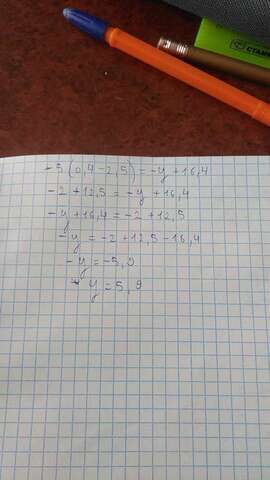 STABI
-5(0,4-2,5)=-y+16,4
-2+12,5=-y+16,4
-y+16,4=-2+12,5
-y=-2+12,5-16,4
-y=-5,9
y=5,9